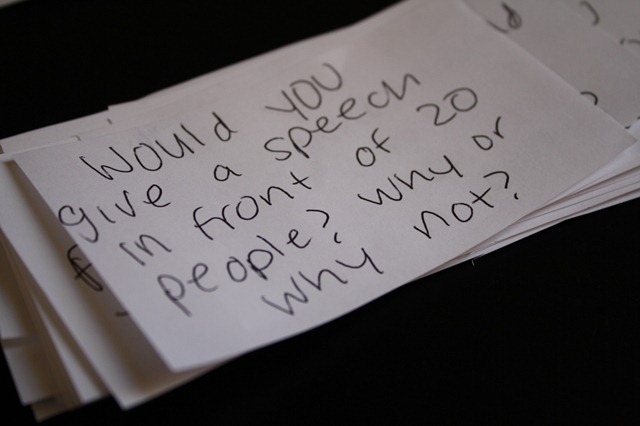 Would you
give a speech
in front of 20
people? Why or
why not?